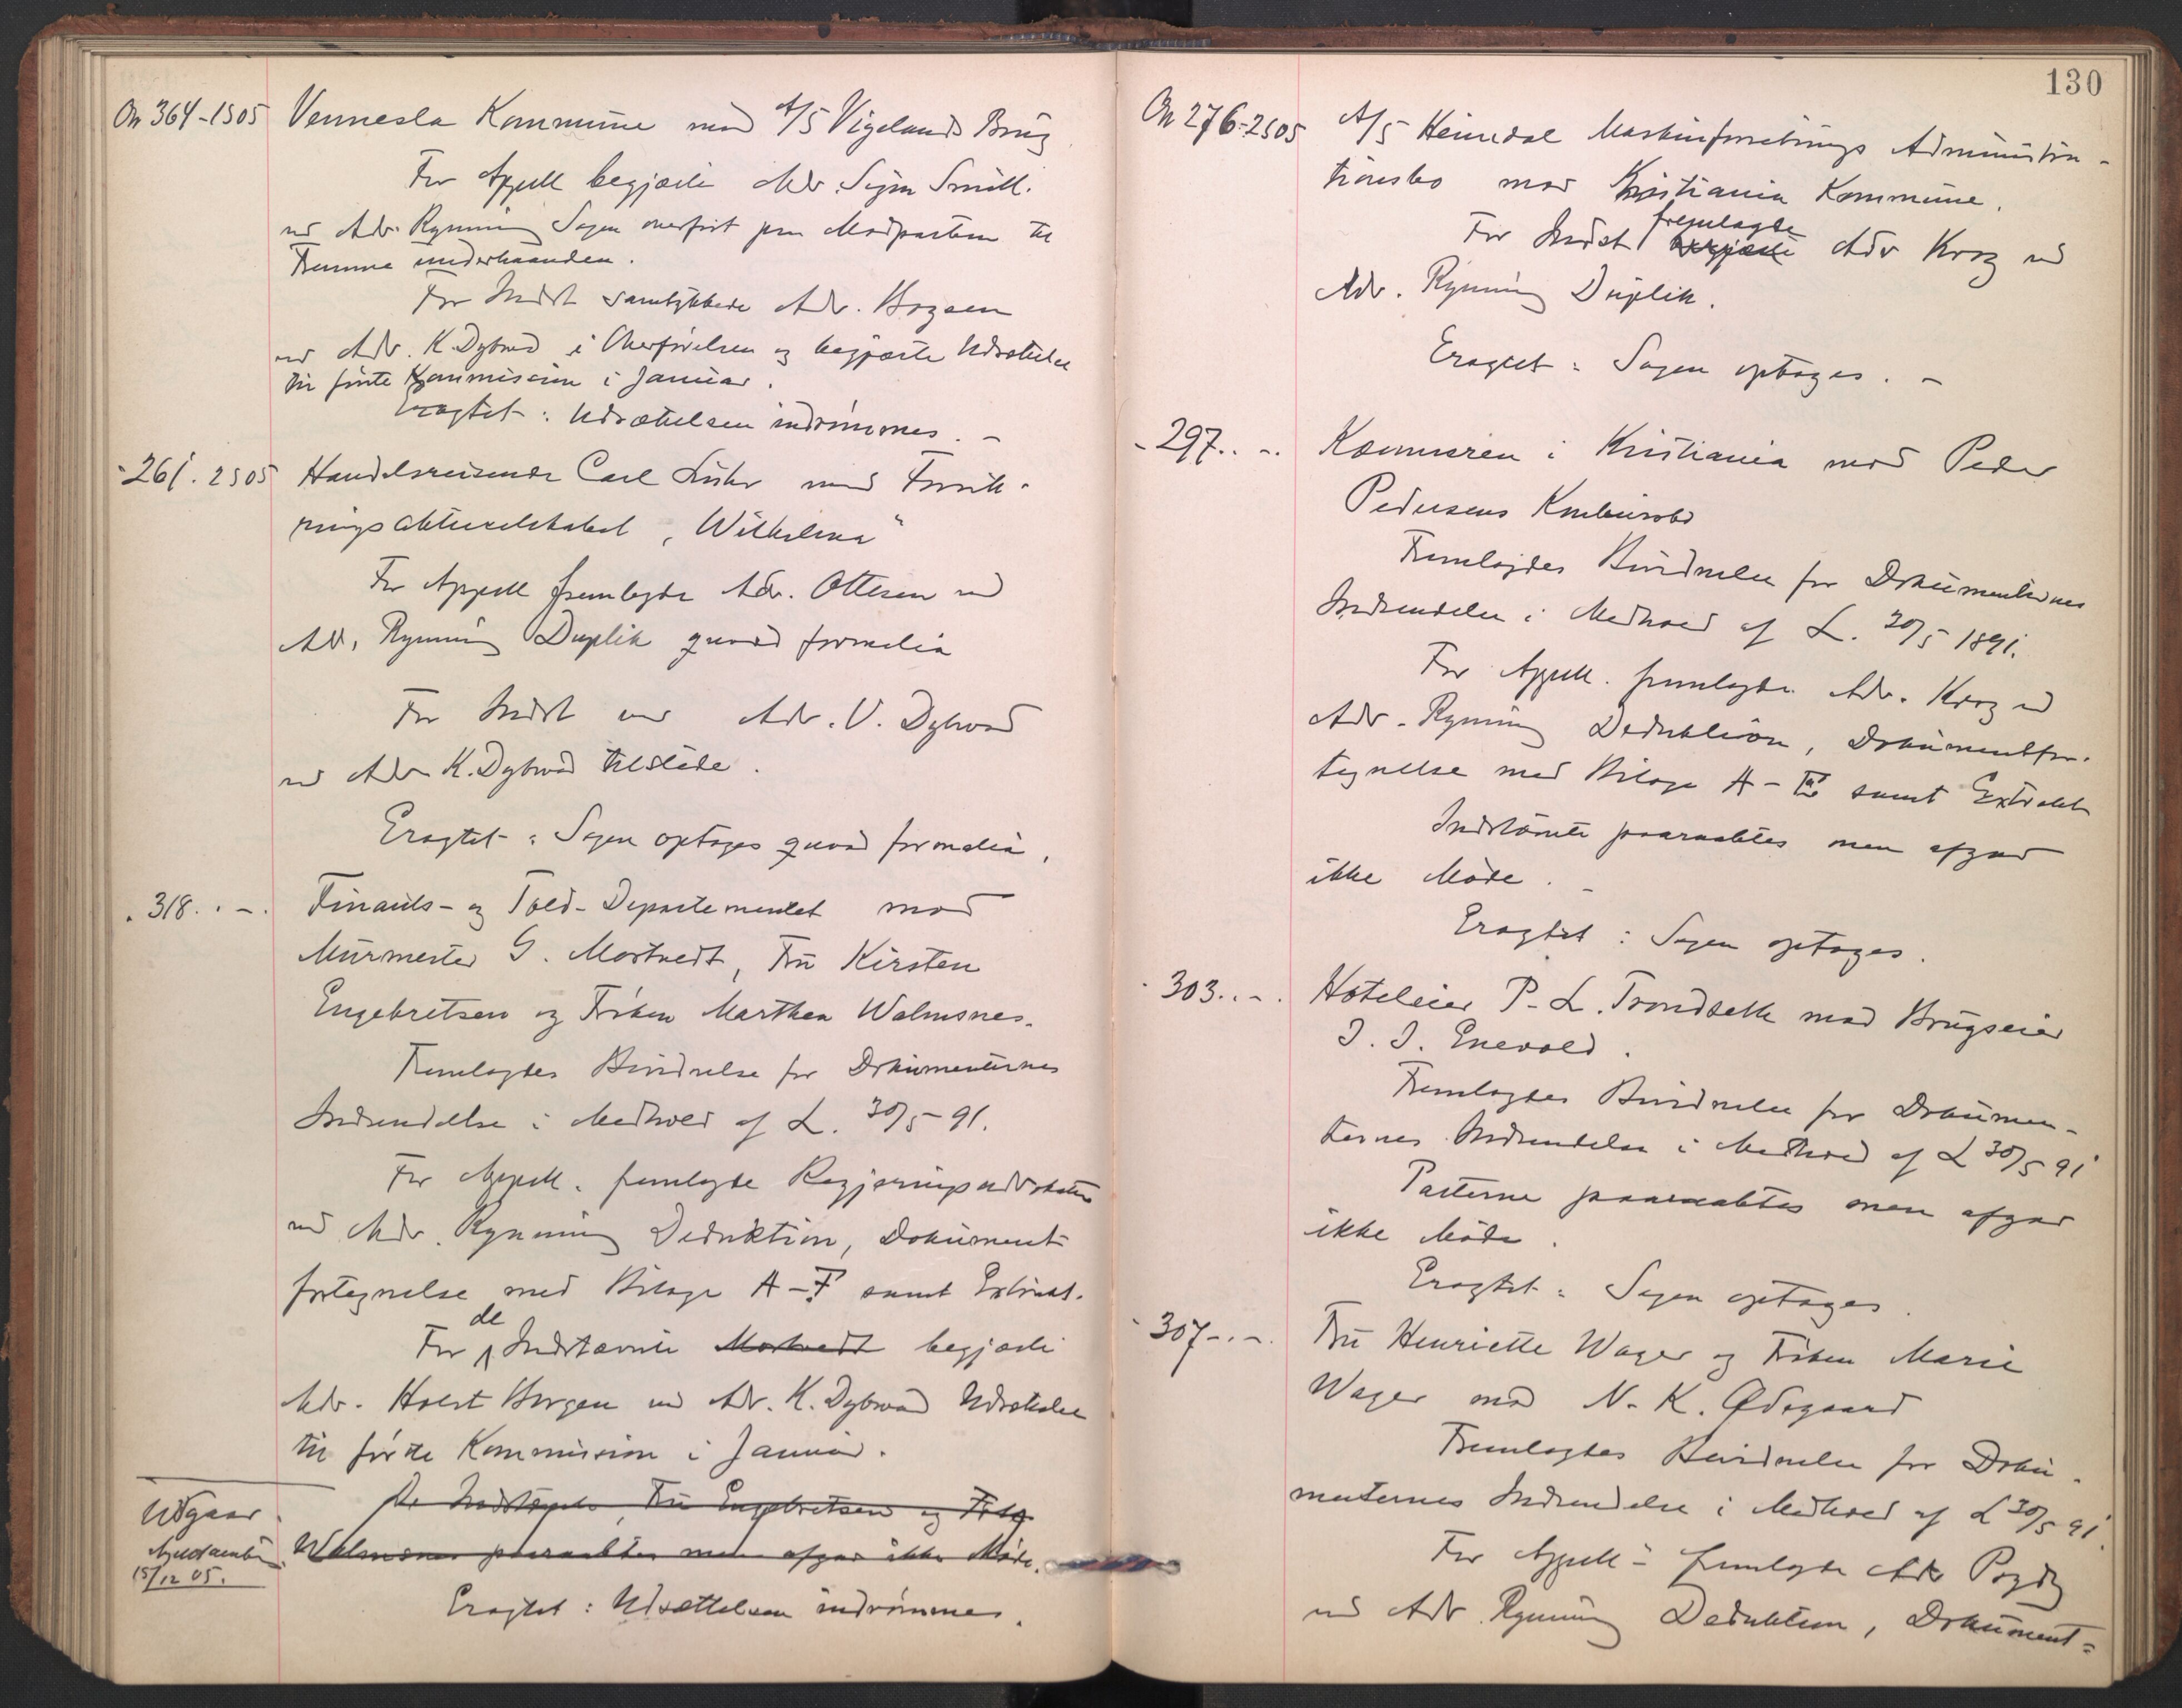 On 364-1S05 Vennesla Kommune mod A/S Vigelands Brug
For Appell begjærte Adv. Sejm Smith.
ved Adv. Rynning Sagen overført paa Modparten til
Fremme underhaanden.
For Indst samtykkede Adv. Hagen
ved Adv. K. Dybwad i Overførelsen og begjærte Udsættelse
til første Kommission i Januar.
Eragtet: Udsættelsen indrømmes. -
- 261. 2S05 Handelsreisende Carl Lühr mod Forsik-
ringsaktieselskabet „Wilhelma"
For Appell fremlagde Adv. Ottesen ved
Adv. Rynning Duplik quoad formalia
For Indst var Adv. V. Dybwad
ved Adv K. Dybwad tilstede.
Eragtet: Sagen optages quoad formalia.
- 318. . -. Finants- og Told-Departementet mod
Murmester G. Mostvedt, Fru Kirsten
Engebretsen og Frøken Marthea Walmsnes.
Fremlagdes Bevidnelse for Dokumenternes
Indsendelse i Medhold af L. 30/5-91.
For Appell. fremlagde Regjeringsadvokaten
ved Adv. Rynning Deduktion, Dokument-
fortegnelse med Bilage A-F samt Extrakt.
de
For Indstævnte Mostvedt begjærte
Adv. Holst Borgen ved Adv. K. Dybwad Udsættelse
til første Kommission i Januar.
De Indstævnte, Fru Engebretsen og Frkn
Walmsnes paaraabtes men afgav ikke Møde.
Udgaar
15/12 05.
Eragtet: Udsættelsen indrømmes.
130
On 276-2S05 A/S Heimdal Maskinforretnings Administra-
tionsbo mod Kristiania Kommune.
fremlagde
For Indst begjærte Adv Krog ved
Adv. Rynning Duplik.
Eragtet: Sagen optages. -
- 297. . -. Kæmneren i Kristiania mod Peder
Pedersens Konkursbo
Fremlagdes Bevidnelse for Dokumenternes
Indsendelse i Medhold af L. 30/5 1891.
For Appell. fremlagde Adv. Krog ved
Adv. Rynning Deduktion, Dokumentfor-
tegnelse med Bilage A-E samt Extrakt
Indstævnte paaraabtes men afgav
ikke Møde. -
Eragtet: Sagen optages.
- 303. . -. Hoteleier P. L. Trondsætte mod Brugseier
J. J. Enevold.
Fremlagdes Bevidnelse for Dokumen-
ternes Indsendelse i Medhold af L 30/5 91
Parterne paaraabtes men afgav
ikke Møde.
Eragtet: Sagen optages.
- 307 -. -. Fru Henriette Wager og Frøken Marie
Wager mod N. K. Ødegaard
Fremlagdes Bevidnelse for Doku-
menternes Indsendelse i Medhold af L 30/5 91.
For Appell fremlagde Adv
ved Adv. Rynning Deduktion, Dokument-